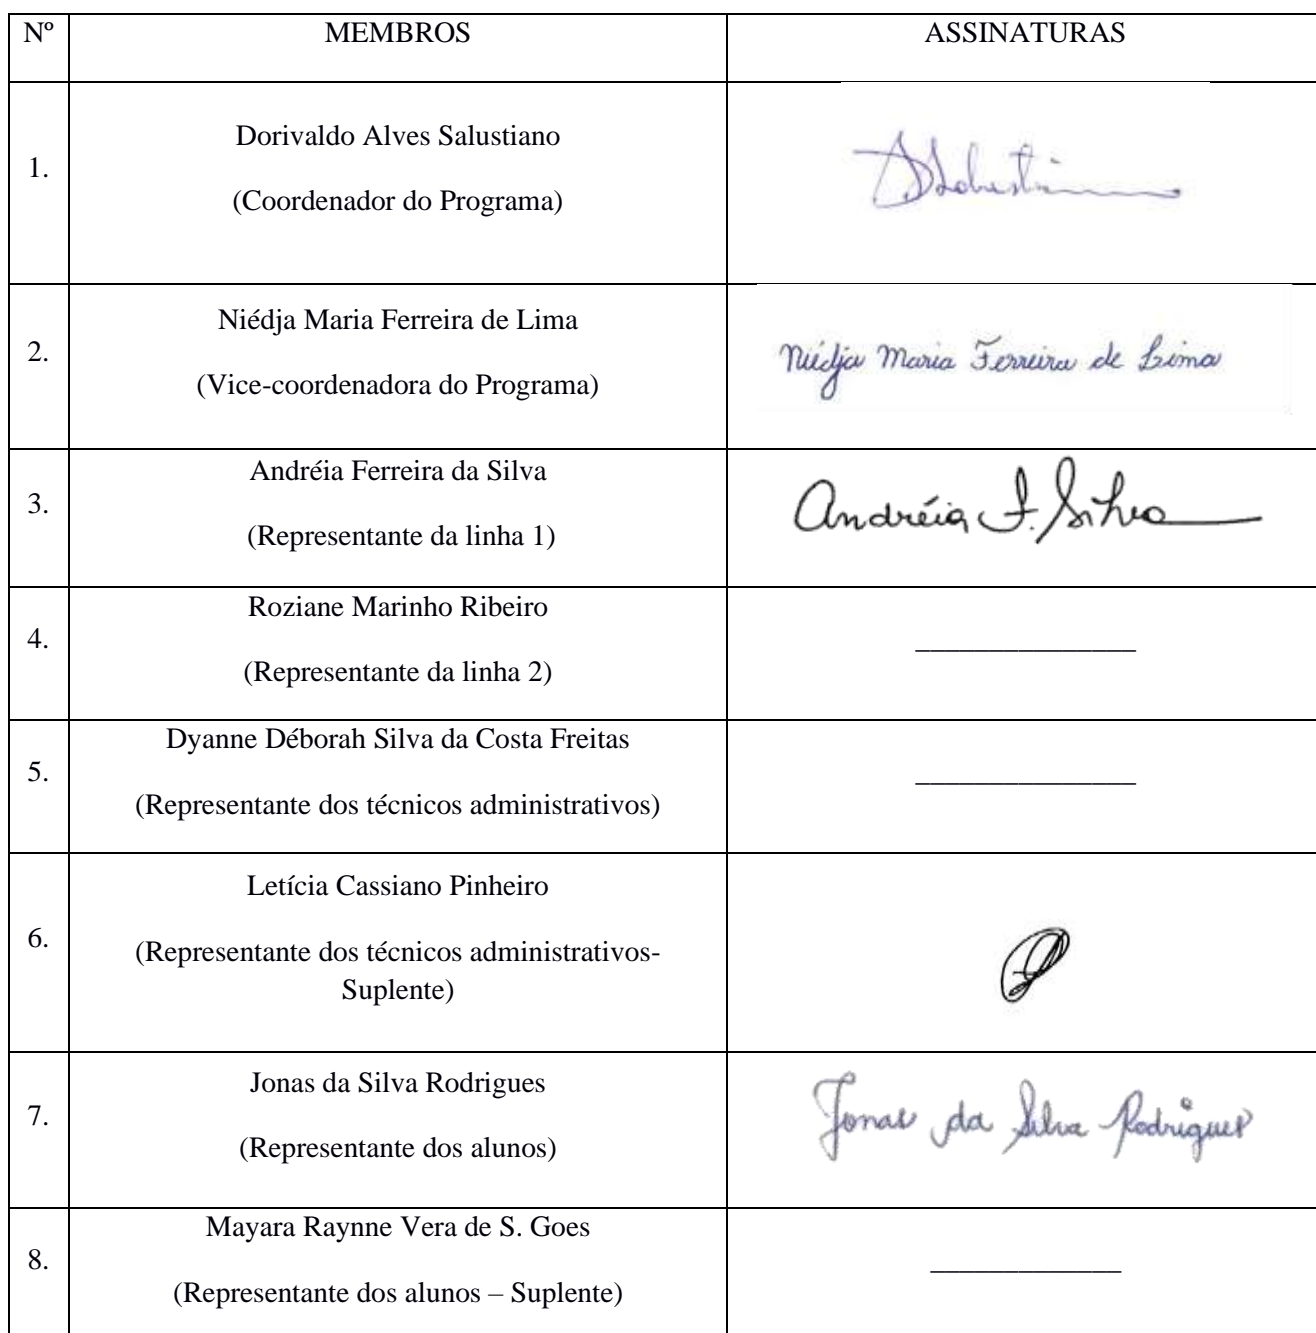 Nº MEMBROS ASSINATURAS
1.
Dorivaldo Alves Salustiano
(Coordenador do Programa)
2.
Niédja Maria Ferreira de Lima
(Vice-coordenadora do Programa)
Niédja Maria Ferreira de Lima
3.
Andréia Ferreira da Silva
(Representante da linha 1)
Andréia F. Silva
4.
Roziane Marinho Ribeiro
(Representante da linha 2)
_______________
5.
Dyanne Déborah Silva da Costa Freitas
(Representante dos técnicos administrativos)
_______________
6.
Letícia Cassiano Pinheiro
(Representante dos técnicos administrativos-
Suplente)
7.
Jonas da Silva Rodrigues
(Representante dos alunos)
Jonas da Silva Rodrigues
8.
Mayara Raynne Vera de S. Goes
(Representante dos alunos – Suplente)
_____________